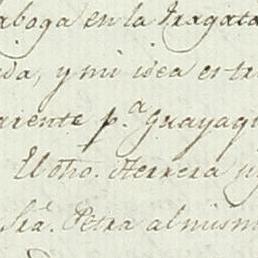 aboga en la Fragata
da, y mi idea es tra
ariente p.ª Guayaqu
El otro. Herrera y
Sra. Petra al mism